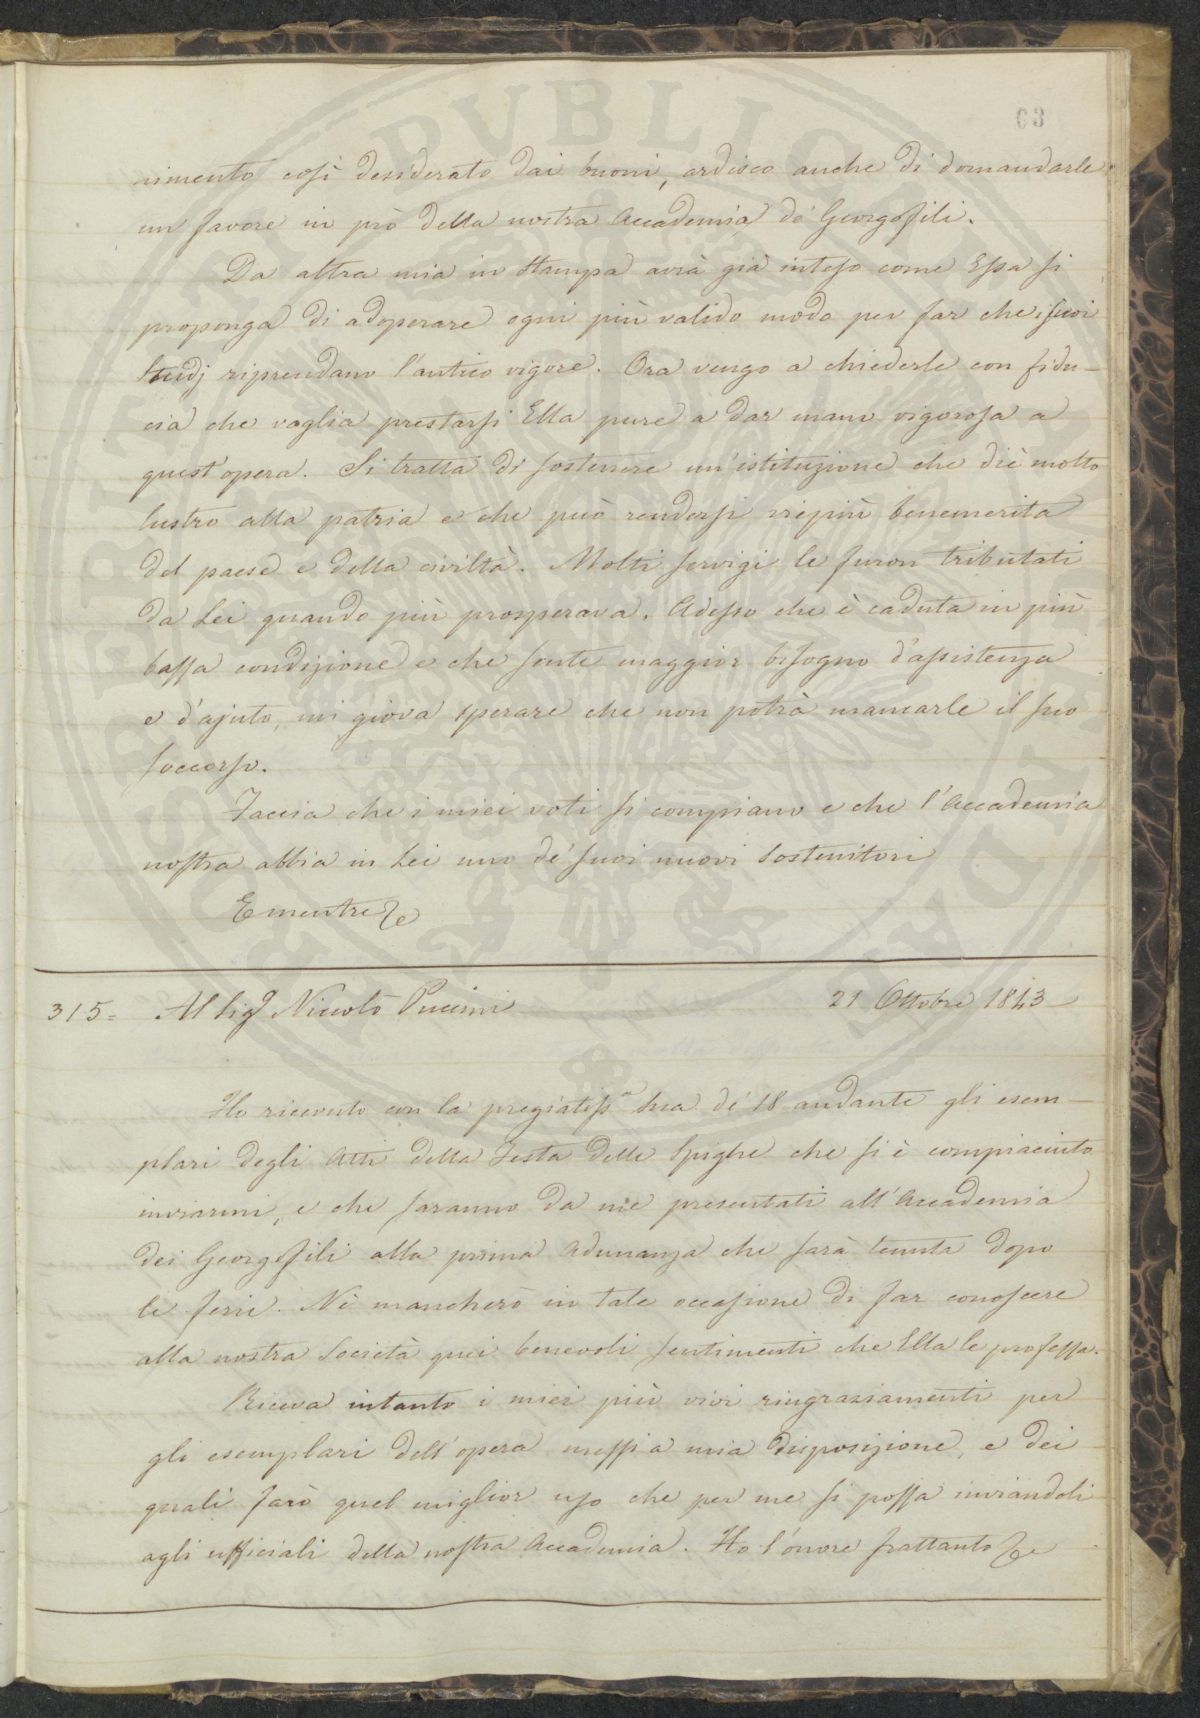 63
nimento così desiderato dai buoni, ardisco anche di domandarle
un favore in prò della nostra Accademia de' Georgofili.
Da altra mia in stampa avrà già inteso come Essa si
proponga di adoperare ogni più valido modo per far che i suoi
studj riprendano l'antico vigore. Ora vengo a chiederle con fidu-
cia che voglia prestarsi Ella pure a dar mano vigorosa a
quest'opera. Si tratta di sostenere un'istituzione che diè molto
lustro alla patria e che può rendersi viepiù benemerita
del paese e della civiltà. Molti servigi le furon tributati
da Lei quando più prosperava. Adesso che è caduta in più
bassa condizione e che sente maggior bisogno d'assistenza
e d'ajuto, mi giova sperare che non potrà mancarle il suo
soccorso.
Faccia che i miei voti si compiano e che l'Accademia
nostra abbia in Lei uno de' suoi nuovi sostenitori
E mentre &c
315= Al Sigr Niccolò Puccini 21 Ottobre 1843
Ho ricevuto con la pregiatissa sua de' 18 andante gli esem-
plari degli Atti della Festa delle Spighe che si è compiaciuto
inviarmi, e che saranno da me presentati all'Accademia
dei Georgofili alla prima adunanza che sarà tenuta dopo
le ferie. Nè mancherò in tale occasione di far conoscere
alla nostra Società quei benevoli sentimenti che Ella le professa.
Riceva intanto i miei più vivi ringraziamenti per
gli esemplari dell'opera messi a mia disposizione, e dei
quali farò quel miglior uso che per me si possa inviandoli
agli ufficiali della nostra Accademia. Ho l'onore frattanto &c